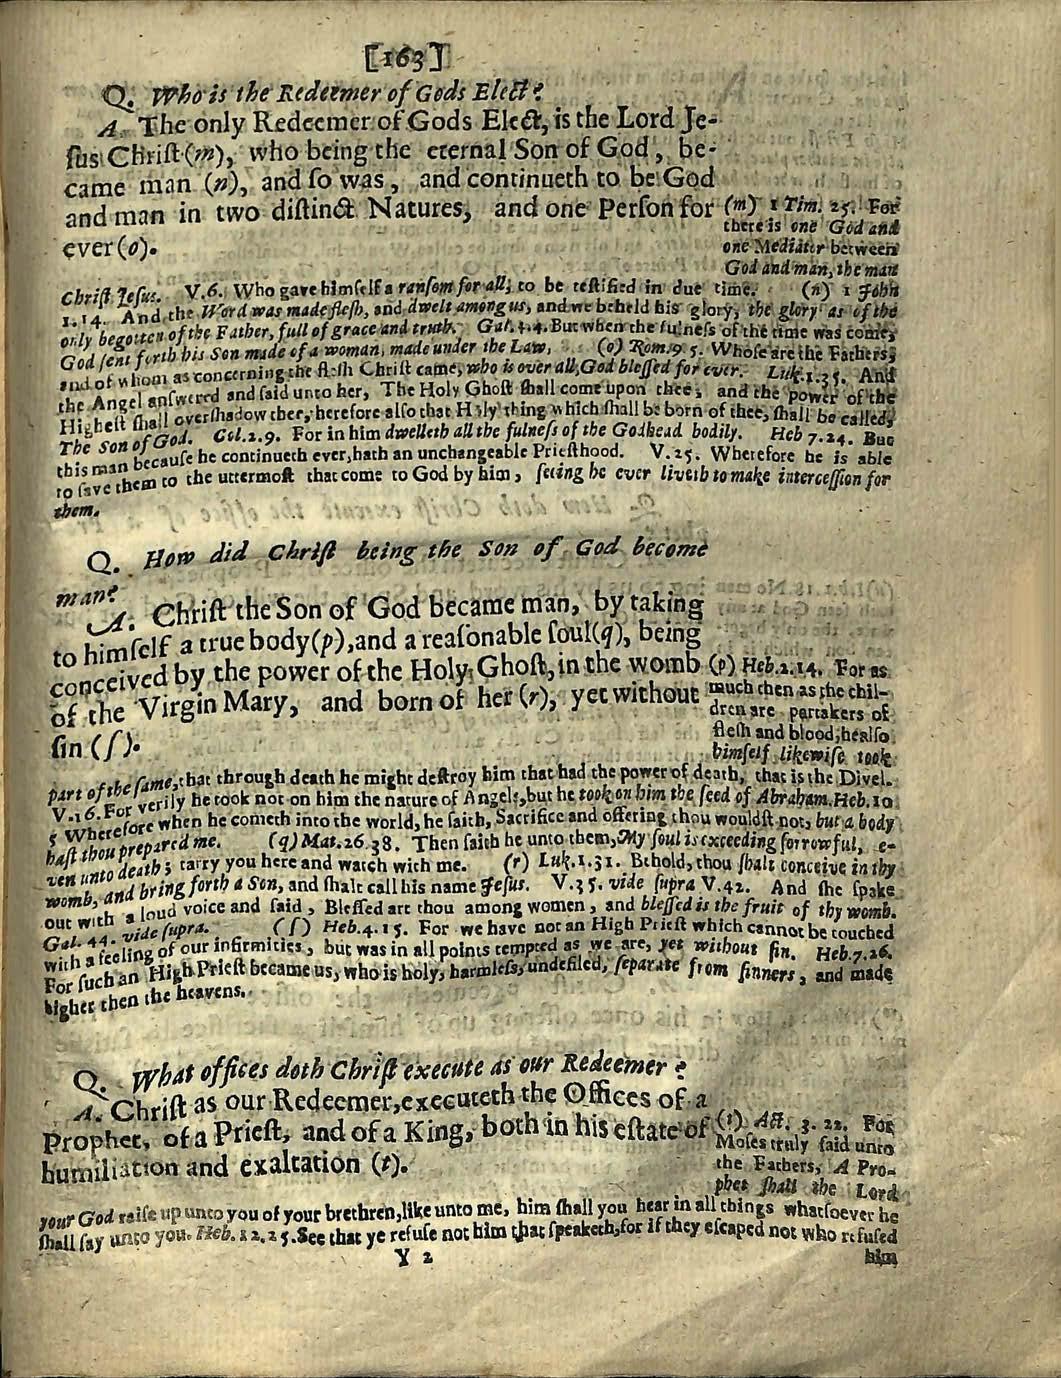 [163]
Q. Who is the Redeemer of Gods Elect?
A. The only Redeemer of Gods Elect, is the Lord Je-
ſus Chriſt (m), who being the eternal Son of God, be-
came man (n), and ſo was, and continueth to be God
and man in two diſtinct Natures, and one Perſon for
ever (o).
(m) 1 Tim. 25. For
there is one God and
one Mediator between
God and man, the man
Chriſt Jeſus. V.6. Who gave himſelf a ranſom for all, to be teſtified in due time. (n) 1 John
1.14. And the Word was made fleſh, and dwelt among us, and we beheld his glory, the glory as of the
only begotten of the Father, full of grace and truth. Gal. 4.4. But when the fulneſs of the time was come,
God ſent forth his Son made of a woman, made under the Law, (o) Rom. 9 5. Whoſe are the Fathers,
and of whom as concerning the fleſh Chriſt came, who is over all, God bleſſed for ever. Luk. 1.35. And
the Angel anſwered and ſaid unto her, The Holy Ghoſt ſhall come upon thee, and the power of the
Higheſt ſhall overſhadow thee, therefore alſo that Holy thing which ſhall be born of thee, ſhall be called,
The Son of God. Col. 2.9. For in him dwelleth all the fulneſs of the Godhead bodily. Heb 7.24. But
this man becauſe he continueth ever, hath an unchangeable Prieſthood. V.25. Wherefore he is able
to ſave them to the uttermoſt that come to God by him, ſeeing he ever liveth to make interceſſion for
them.
Q. How did Chriſt being the Son of God become
man?
A. Chriſt the Son of God became man, by taking
to himſelf a true body (p), and a reaſonable ſoul (q), being
conceived by the power of the Holy Ghoſt, in the womb
of the Virgin Mary, and born of her (r), yet without
ſin (ſ).
(p) Heb. 2.14. For as
much then as the chil-
dren are partakers of
fleſh and blood, he alſo
himſelf likewiſe took
part of the ſame, that through death he might deſtroy him that had the power of death, that is the Divel.
V.16. For verily he took not on him the nature of Angels, but he took on him the ſeed of Abraham. Heb. 10
5 Wherefore when he cometh into the world, he ſaith, Sacrifice and offering thou wouldſt not, but a body
haſt thou prepared me. (q) Mat. 26.38. Then ſaith he unto them, My ſoul is exceeding ſorrowful, e-
ven unto death; tarry you here and watch with me. (r) Luk. 1.31. Behold, thou ſhalt conceive in thy
womb, and bring forth a Son, and ſhalt call his name Jeſus. V.35. vide ſupra V.42. And ſhe ſpake
out with a loud voice and ſaid, Bleſſed art thou among women, and bleſſed is the fruit of thy womb.
Gal. 44. vide ſupra. (ſ) Heb. 4.15. For we have not an High Prieſt which cannot be touched
with a feeling of our infirmities, but was in all points tempted as we are, yet without ſin. Heb. 7.26.
For ſuch an High Prieſt became us, who is holy, harmleſs, undefiled, ſeparate from ſinners, and made
higher then the heavens.
Q. What offices doth Chriſt execute as our Redeemer?
A. Chriſt as our Redeemer, executeth the Offices of a
Prophet, of a Prieſt, and of a King, both in his eſtate of
humiliation and exaltation (t).
(t) Act. 3. 22. For
Moſes truly ſaid unto
the Fathers, A Pro-
phet ſhall the Lord
your God raiſe up unto you of your brethren, like unto me, him ſhall you hear in all things whatſoever he
ſhall ſay unto you. Heb. 12.25. See that ye refuſe not him that ſpeaketh, for if they eſcaped not who refuſed
Y 2
him